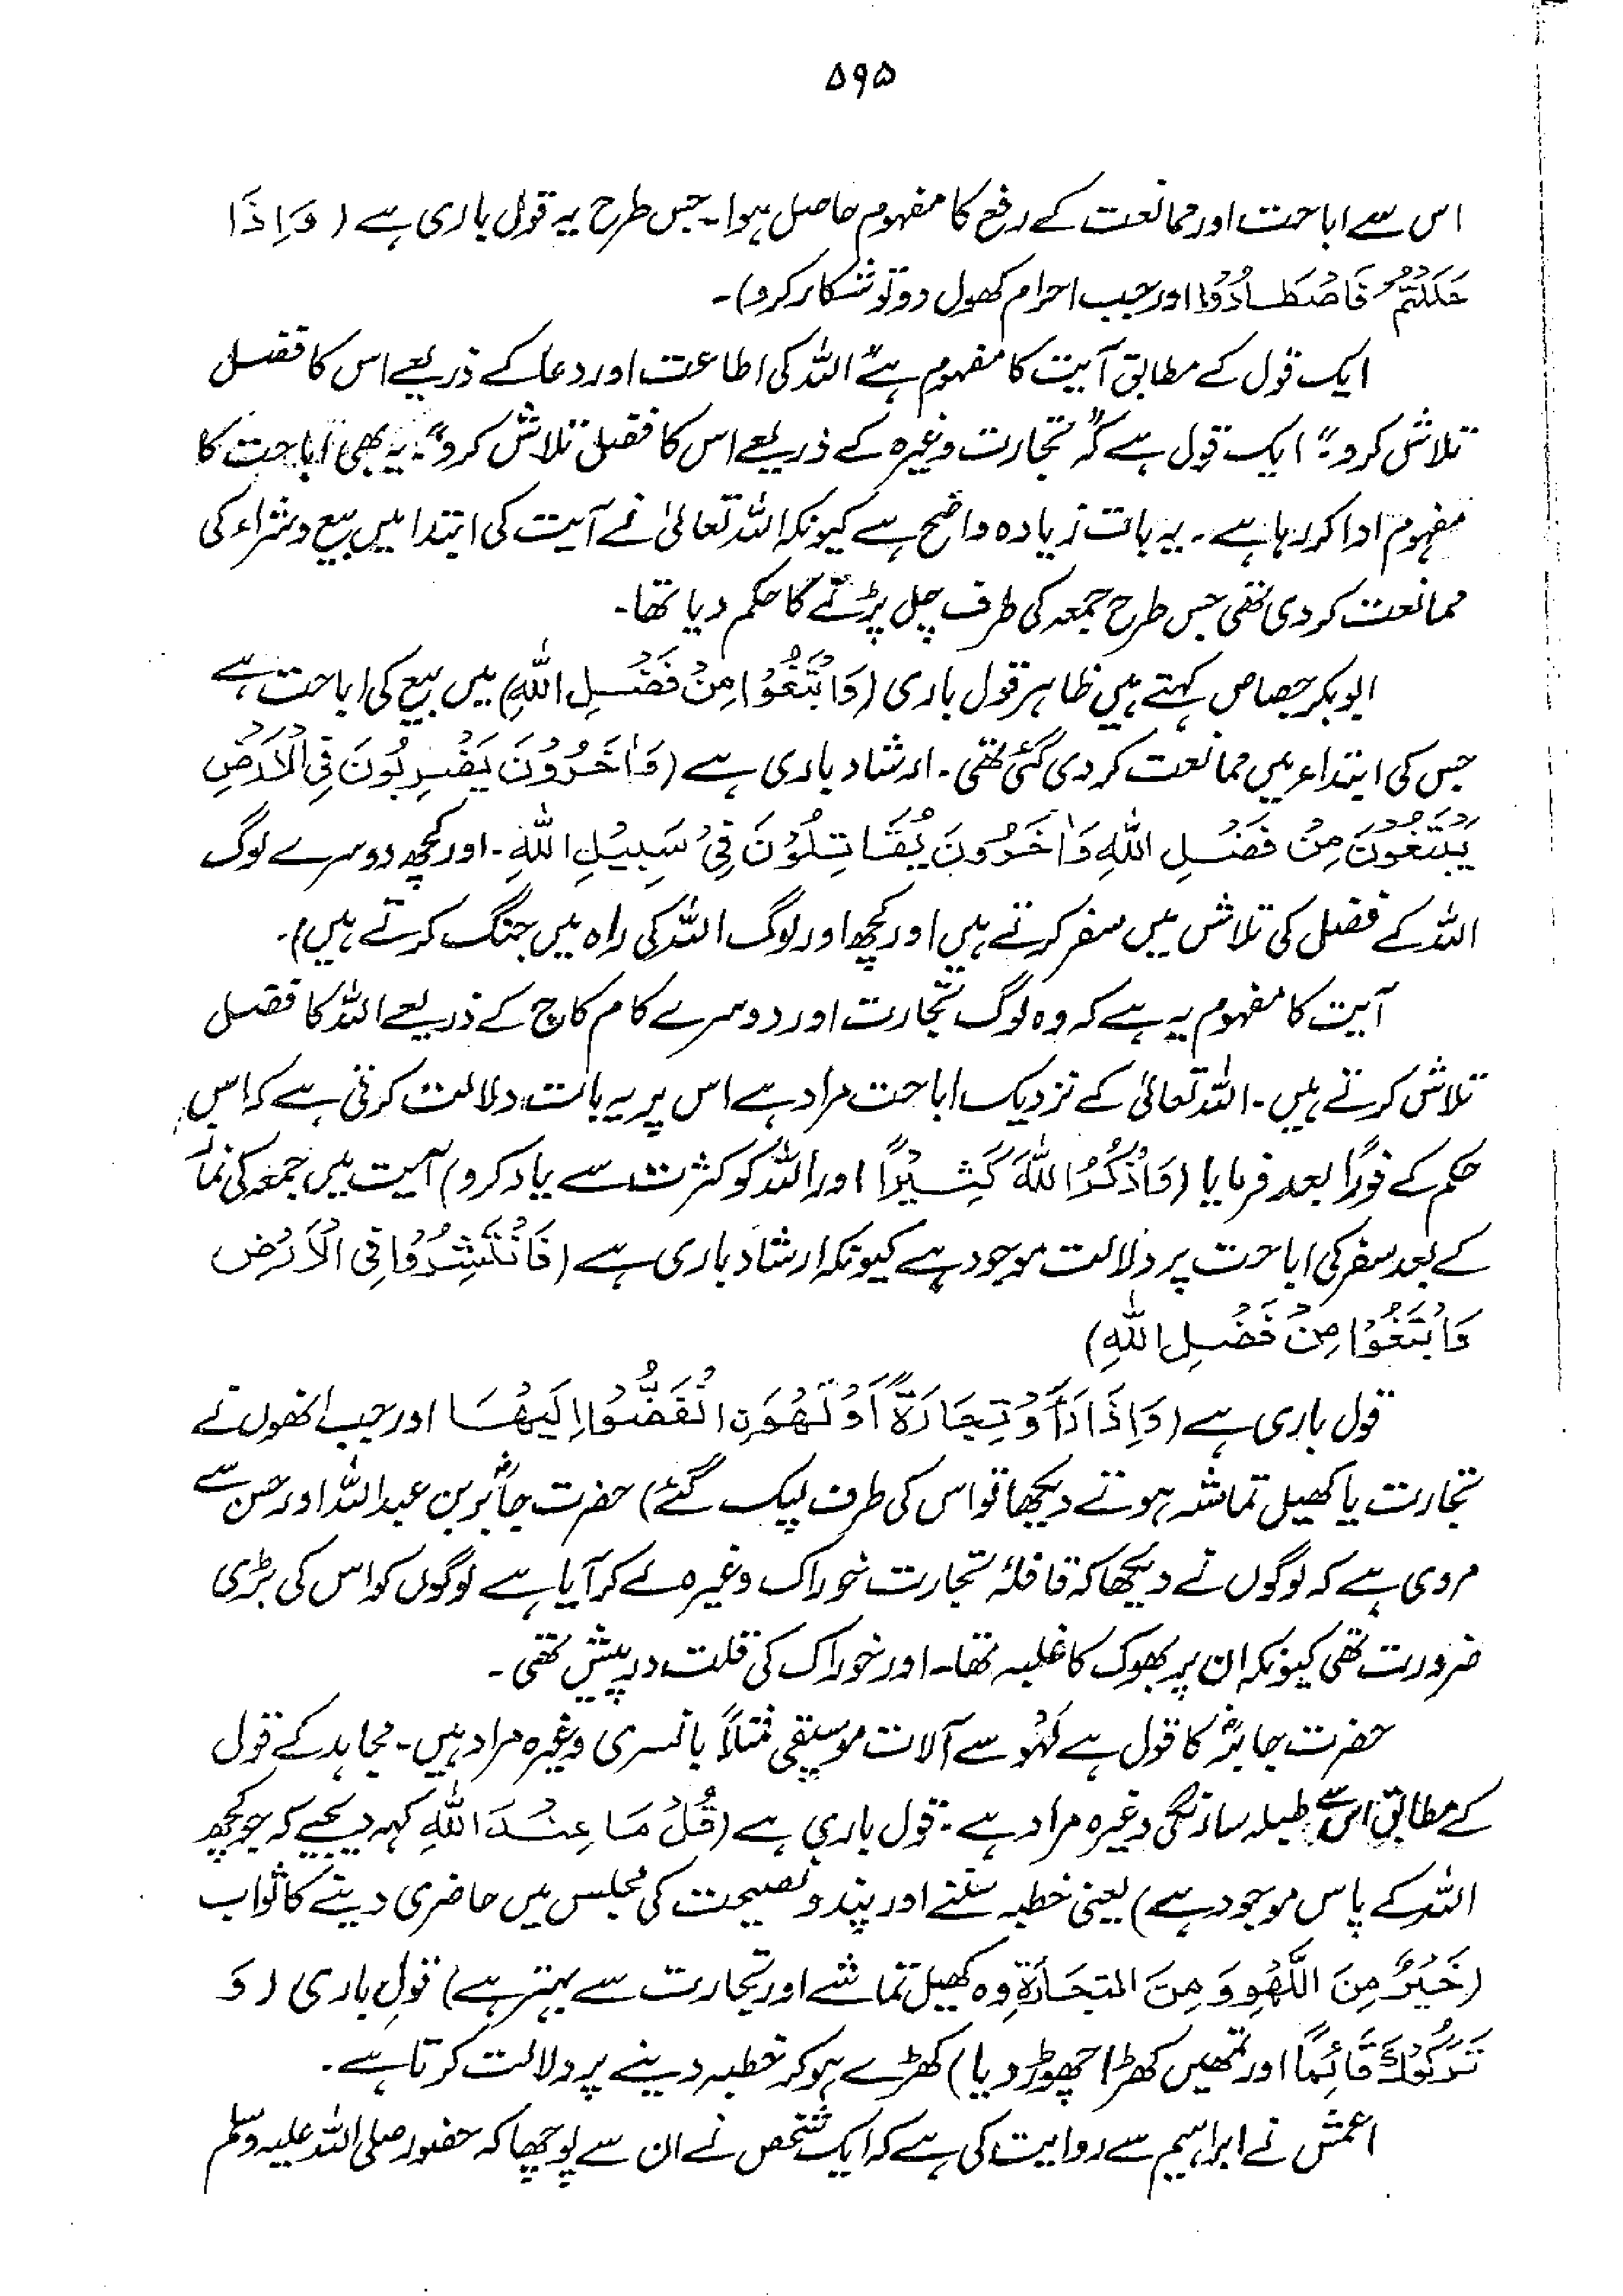 ۵۹۵
اس سے اباحت اور ممانعت کے رفع کا مفہوم حاصل ہوا۔ جس طرح یہ قول باری ہے (وَاِذَا
حَلَلْتُمْ فَاصْطَادُوْا اور جب احرام کھول دو تو شکار کرو)۔
ایک قول کے مطابق آیت کا مفہوم ہے" اللہ کی اطاعت اور دعا کے ذریعے اس کا فضل
تلاش کرو"۔ ایک قول ہے کہ" تجارت وغیرہ کے ذریعے اس کا فضل تلاش کرو"۔ یہ بھی اباحت کا
مفہوم ادا کر رہا ہے۔ یہ بات زیادہ واضح ہے کیونکہ اللہ تعالیٰ نے آیت کی ابتدا میں بیع و شراء کی
ممانعت کر دی تھی جس طرح جمعہ کی طرف چل پڑنے کا حکم دیا تھا۔
ابوبکر جصاص کہتے ہیں ظاہر قول باری (وَابْتَغُوْا مِنْ فَضْلِ اللهِ) میں بیع کی اباحت ہے
جس کی ابتداء میں ممانعت کر دی گئی تھی۔ ارشاد باری ہے (وَاٰخَرُوْنَ يَضْرِبُوْنَ فِی الْاَرْضِ
يَبْتَغُوْنَ مِنْ فَضْلِ اللهِ وَاٰخَرُوْنَ يُقَاتِلُوْنَ فِیْ سَبِيْلِ اللهِ۔ اور کچھ دوسرے لوگ
اللہ کے فضل کی تلاش میں سفر کرتے ہیں اور کچھ اور لوگ اللہ کی راہ میں جنگ کرتے ہیں)۔
آیت کا مفہوم یہ ہے کہ وہ لوگ تجارت اور دوسرے کام کاج کے ذریعے اللہ کا فضل
تلاش کرتے ہیں۔ اللہ تعالیٰ کے نزدیک اباحت مراد ہے اس پر یہ بات دلالت کرتی ہے کہ اس
حکم کے فوراً بعد فرمایا (وَاذْكُرُوا اللهَ كَثِيْرًا اور اللہ کو کثرت سے یاد کرو) آیت میں جمعہ کی نماز
کے بعد سفر کی اباحت پر دلالت موجود ہے کیونکہ ارشاد باری ہے (فَانْتَشِرُوْا فِی الْاَرْضِ
وَابْتَغُوْا مِنْ فَضْلِ اللهِ)
قول باری ہے (وَاِذَا رَاَوْ تِجَارَةً اَوْ لَهْوَنِ انْفَضُّوْا اِلَيْهَا اور جب انھوں نے
تجارت یا کھیل تماشہ ہوتے دیکھا تو اس کی طرف لپک گئے) حضرت جابرؓ بن عبداللہ اور حسن سے
مروی ہے کہ لوگوں نے دیکھا کہ قافلۂ تجارت خوراک وغیرہ لے کر آیا ہے لوگوں کو اس کی بڑی
ضرورت تھی کیونکہ ان پر بھوک کا غلبہ تھا۔ اور خوراک کی قلت درپیش تھی۔
حضرت جابرؓ کا قول ہے لَهْو سے آلات موسیقی مثلاً بانسری وغیرہ مراد ہیں۔ مجاہد کے قول
کے مطابق اس سے طبلہ سارنگی وغیرہ مراد ہے۔ قول باری ہے (قُلْ مَا عِنْدَ اللهِ کہہ دیجیے کہ جو کچھ
اللہ کے پاس موجود ہے) یعنی خطبہ سننے اور پند و نصیحت کی مجلس میں حاضری دینے کا ثواب
(خَيْرٌ مِنَ اللَّهْوِ وَ مِنَ التِجَارَةِ وہ کھیل تماشے اور تجارت سے بہتر ہے) قولِ باری (وَ
تَرَكُوْكَ قَائِمًا اور تمھیں کھڑا چھوڑ دیا) کھڑے ہو کر خطبہ دینے پر دلالت کرتا ہے۔
اعمش نے ابراہیم سے روایت کی ہے کہ ایک شخص نے ان سے پوچھا کہ حضور صلی اللہ علیہ وسلم